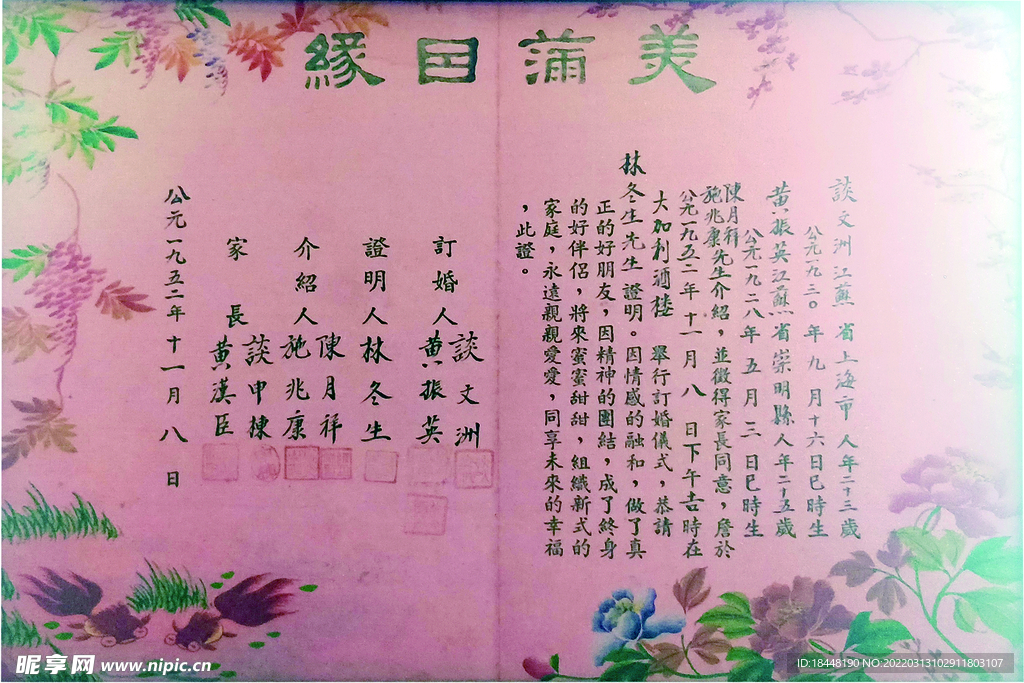 美滿因緣
談文洲江蘇省上海市人年二十三歲
公元一九三〇年九月十六日巳時生
黃振英江蘇省崇明縣人年二十五歲
公元一九二八年五月三日巳時生
陳月祥
施兆康先生介紹，並徵得家長同意，詹於
公元一九五二年十一月八日下午吉時在
大加利酒楼 舉行訂婚儀式，恭請
林冬生先生證明。因情感的融和，做了真
正的好朋友，因精神的團結，成了終身
的好伴侶，將來蜜蜜甜甜，組織新式的
家庭，永遠親親愛愛，同享未來的幸福
，此證。
訂婚人談文洲
黃振英
證明人林冬生
介紹人陳月祥
施兆康
家長談申棟
黃漢臣
公元一九五二年十一月八日
昵享网 www.nipic.cn
ID:18448190 NO:20220313102911803107